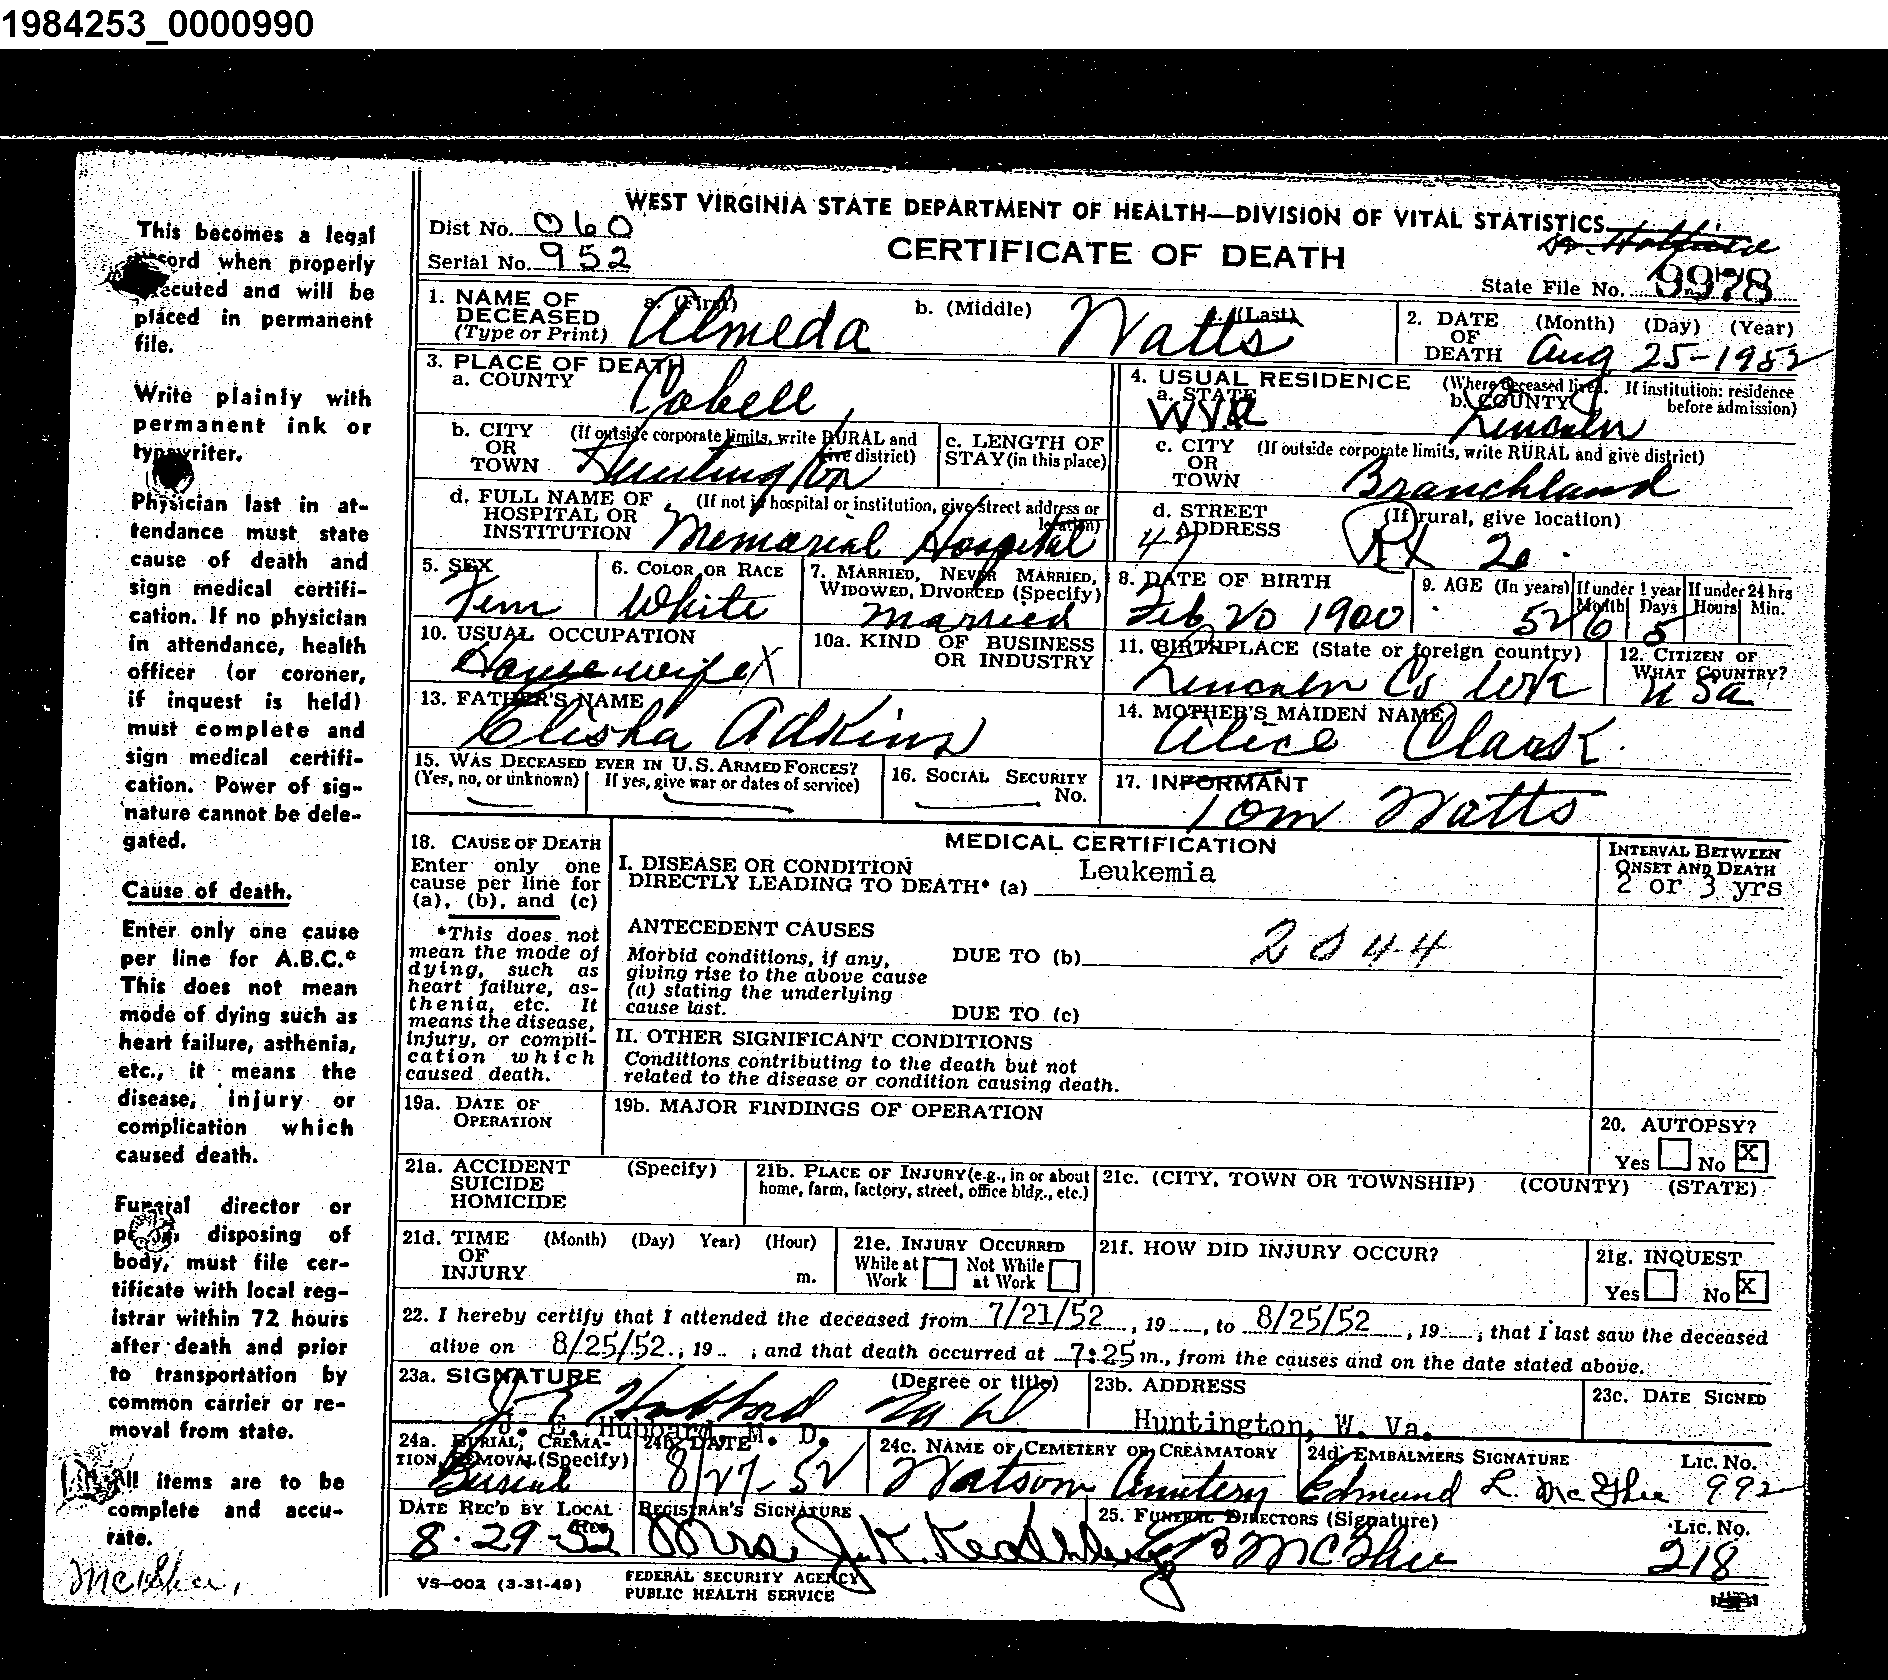 1984253_0000990
WEST VIRGINIA STATE DEPARTMENT OF HEALTH—DIVISION OF VITAL STATISTICS
Dist No. 060
Serial No. 952
CERTIFICATE OF DEATH
State File No. 9978
1. NAME OF DECEASED (Type or Print) a. (First) Almeda b. (Middle) c. (Last) Watts
2. DATE OF DEATH (Month) (Day) (Year) Aug 25-1952
3. PLACE OF DEATH
a. COUNTY Cabell
4. USUAL RESIDENCE (Where deceased lived. If institution: residence before admission)
a. STATE WVa b. COUNTY Lincoln
b. CITY OR TOWN (If outside corporate limits, write RURAL and give district) Huntington
c. LENGTH OF STAY (in this place)
c. CITY OR TOWN (If outside corporate limits, write RURAL and give district) Branchland
d. FULL NAME OF HOSPITAL OR INSTITUTION (If not in hospital or institution, give street address or location) Memorial Hospital
d. STREET ADDRESS (If rural, give location) 47 Rt 2
5. SEX Fem
6. COLOR OR RACE White
7. MARRIED, NEVER MARRIED, WIDOWED, DIVORCED (Specify) Married
8. DATE OF BIRTH Feb 20 1900
9. AGE (In years) 52 If under 1 year Month 6 Days 5 If under 24 hrs Hours Min.
10. USUAL OCCUPATION Housewife X
10a. KIND OF BUSINESS OR INDUSTRY
11. BIRTHPLACE (State or foreign country) Lincoln Co WVa
12. CITIZEN OF WHAT COUNTRY? USa
13. FATHER'S NAME Elisha Adkins
14. MOTHER'S MAIDEN NAME Alice Clark
15. WAS DECEASED EVER IN U.S. ARMED FORCES?
(Yes, no, or unknown) If yes, give war or dates of service)
16. SOCIAL SECURITY No.
17. INFORMANT Tom Watts
18. CAUSE OF DEATH
Enter only one cause per line for (a), (b), and (c)
*This does not mean the mode of dying, such as heart failure, asthenia, etc. It means the disease, injury, or complication which caused death.
MEDICAL CERTIFICATION
INTERVAL BETWEEN ONSET AND DEATH
I. DISEASE OR CONDITION DIRECTLY LEADING TO DEATH* (a) Leukemia 2 or 3 yrs
ANTECEDENT CAUSES
Morbid conditions, if any, giving rise to the above cause (a) stating the underlying cause last.
DUE TO (b) 2044
DUE TO (c)
II. OTHER SIGNIFICANT CONDITIONS
Conditions contributing to the death but not related to the disease or condition causing death.
19a. DATE OF OPERATION
19b. MAJOR FINDINGS OF OPERATION
20. AUTOPSY?
Yes No X
21a. ACCIDENT SUICIDE HOMICIDE (Specify)
21b. PLACE OF INJURY (e.g., in or about home, farm, factory, street, office bldg., etc.)
21c. (CITY, TOWN OR TOWNSHIP) (COUNTY) (STATE)
21d. TIME OF INJURY (Month) (Day) Year) (Hour) m.
21e. INJURY OCCURRED While at Work Not While at Work
21f. HOW DID INJURY OCCUR?
21g. INQUEST
Yes No X
22. I hereby certify that I attended the deceased from 7/21/52, 19 , to 8/25/52, 19 ; that I last saw the deceased
alive on 8/25/52., 19 ; and that death occurred at 7:25 m., from the causes and on the date stated above.
23a. SIGNATURE (Degree or title) J E Hubbard M D
J. E. Hubbard, M. D.
23b. ADDRESS Huntington, W. Va.
23c. DATE SIGNED
24a. BURIAL, CREMATION, REMOVAL (Specify) Burial
24b. DATE 8/27-52
24c. NAME OF CEMETERY OR CREAMATORY Watson Cemetery
24d. EMBALMERS SIGNATURE Edmund L. McGhee LIC. NO. 992
DATE REC'D BY LOCAL REG. 8-29-52
REGISTRAR'S SIGNATURE Mrs. J. K.
25. FUNERAL DIRECTORS (Signature) McGhee LIC. NO. 218
VS-002 (3-31-49)
FEDERAL SECURITY AGENCY
PUBLIC HEALTH SERVICE
This becomes a legal
record when properly
executed and will be
placed in permanent
file.
Write plainly with
permanent ink or
typewriter.
Physician last in at-
tendance must state
cause of death and
sign medical certifi-
cation. If no physician
in attendance, health
officer (or coroner,
if inquest is held)
must complete and
sign medical certifi-
cation. Power of sig-
nature cannot be dele-
gated.
Cause of death.
Enter only one cause
per line for A.B.C.*
This does not mean
mode of dying such as
heart failure, asthenia,
etc., it means the
disease, injury or
complication which
caused death.
Funeral director or
person disposing of
body, must file cer-
tificate with local reg-
istrar within 72 hours
after death and prior
to transportation by
common carrier or re-
moval from state.
All items are to be
complete and accu-
rate.
McGhee,